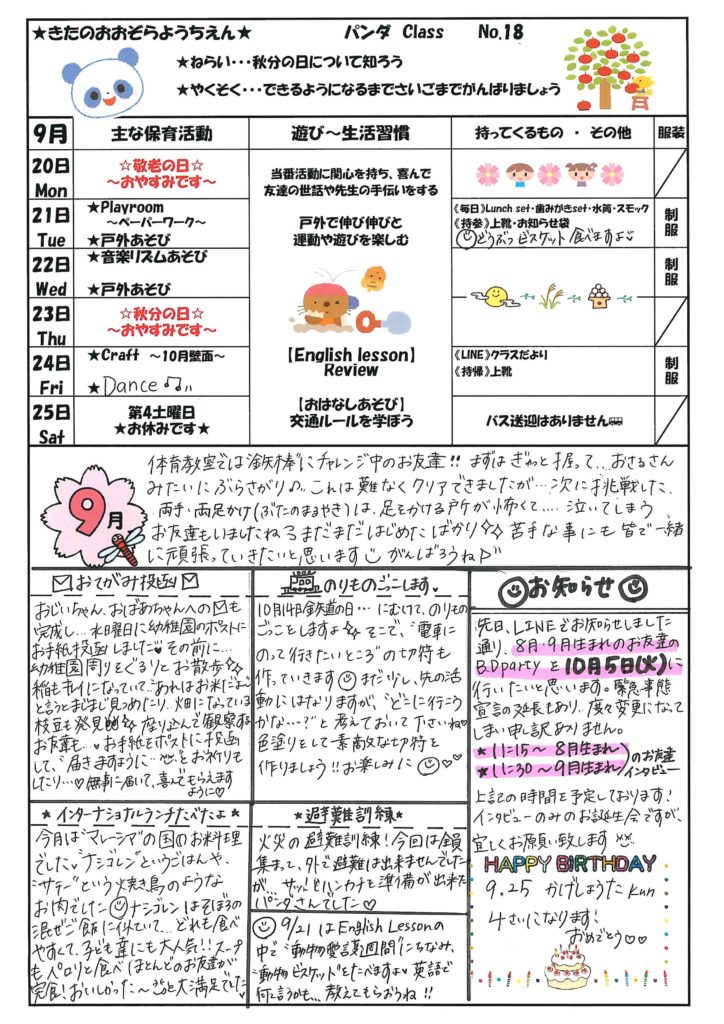 ★きたのおおぞらようちえん★　パンダ Class　No.18
★ねらい・・・秋分の日について知ろう
★やくそく・・・できるようになるまでさいごまでがんばりましょう
9月　主な保育活動　遊び～生活習慣　持ってくるもの ・ その他　服装
20日 Mon
☆敬老の日☆
～おやすみです～
21日 Tue
★Playroom
～ペーパーワーク～
★戸外あそび
22日 Wed
★音楽リズムあそび
★戸外あそび
23日 Thu
☆秋分の日☆
～おやすみです～
24日 Fri
★Craft ～10月壁面～
★Dance♫
25日 Sat
第4土曜日
★お休みです★
当番活動に関心を持ち、喜んで
友達の世話や先生の手伝いをする
戸外で伸び伸びと
運動や遊びを楽しむ
【English lesson】
Review
【おはなしあそび】
交通ルールを学ぼう
《毎日》Lunch set・歯みがきset・水筒・スモック
《持参》上靴・お知らせ袋
どうぶつビスケット食べますよ
制服
制服
《LINE》クラスだより
《持帰》上靴
制服
バス送迎はありません
9月
体育教室では"鉄棒"にチャレンジ中のお友達!! まずはぎゅっと握って… おさるさん
みたいにぶらさがり♪ これは難なくクリアできましたが… 次に挑戦した、
両手・両足かけ(ぶたのまるやき)は、足をかける所が怖くて…. 泣いてしまう
お友達もいましたね まだまだはじめたばかり 苦手な事にも皆で一緒
に頑張っていきたいと思います がんばろうね♪"
おてがみ投函
おじいちゃん、おばあちゃんへの✉も
完成し… 水曜日に幼稚園のポストに
お手紙投函しました♥ その前に…
幼稚園周りをぐるりとお散歩
稲もキイになっていて"あれはお米だよ"
と言うとまじまじ見つめたり、畑になっている
枝豆も発見 座り込んで観察する
お友達も…♥ お手紙をポストに投函
して、"届きますように…"とお祈りも
したり…♥ 無事に届いて、喜んでもらえます
ように♡
のりものごっこします
10月14日鉄道の日… にむけて、のりもの
ごっこしますよ そこで、"電車に
のって行きたいところ"の切符も
作っていきます まだ少し、先の活
動にはなりますが、"どこに行こう
かな…?"と考えておいて下さいね
色塗りをして素敵な切符を
作りましょう!! お楽しみに
お知らせ
先日、LINEでお知らせしました
通り、8月・9月生まれのお友達の
B.Dpartyを10月5日(火)に
行いたいと思います。緊急事態
宣言の延長もあり、度々変更になって
しまい申し訳ありません。
★11:15～8月生まれ
★11:30～9月生まれ
のお友達
インタビュー
上記の時間を予定しております!
インタビューのみのお誕生会ですが、
宜しくお願い致します
HAPPY BIRTHDAY
9.25 かげしょうた kun
4さいになります!
おめでとう♡♡
★インターナショナルランチたべたよ★
今月は"マレーシア"の国のお料理
でした "ナシゴレン"というごはんや、
"サテー"という焼き鳥のような
お肉でした ナシゴレンはそぼろの
混ぜご飯に似ていて… どれも食べ
やすくて、子ども達にも大人気!! スープ
もペロリと食べ ほとんどのお友達が
完食! おいしかった～と大満足でした
★避難訓練★
火災の避難訓練! 今回は全員
集まって、外で避難は出来ませんでした
が… サッとハンカチと準備が出来た
パンダさんでした♡
9/21はEnglish Lessonの
中で"動物愛護週間"にちなみ、
"動物ビスケット"をたべますよ 英語で
何と言うかも… 教えてもらおうね!!